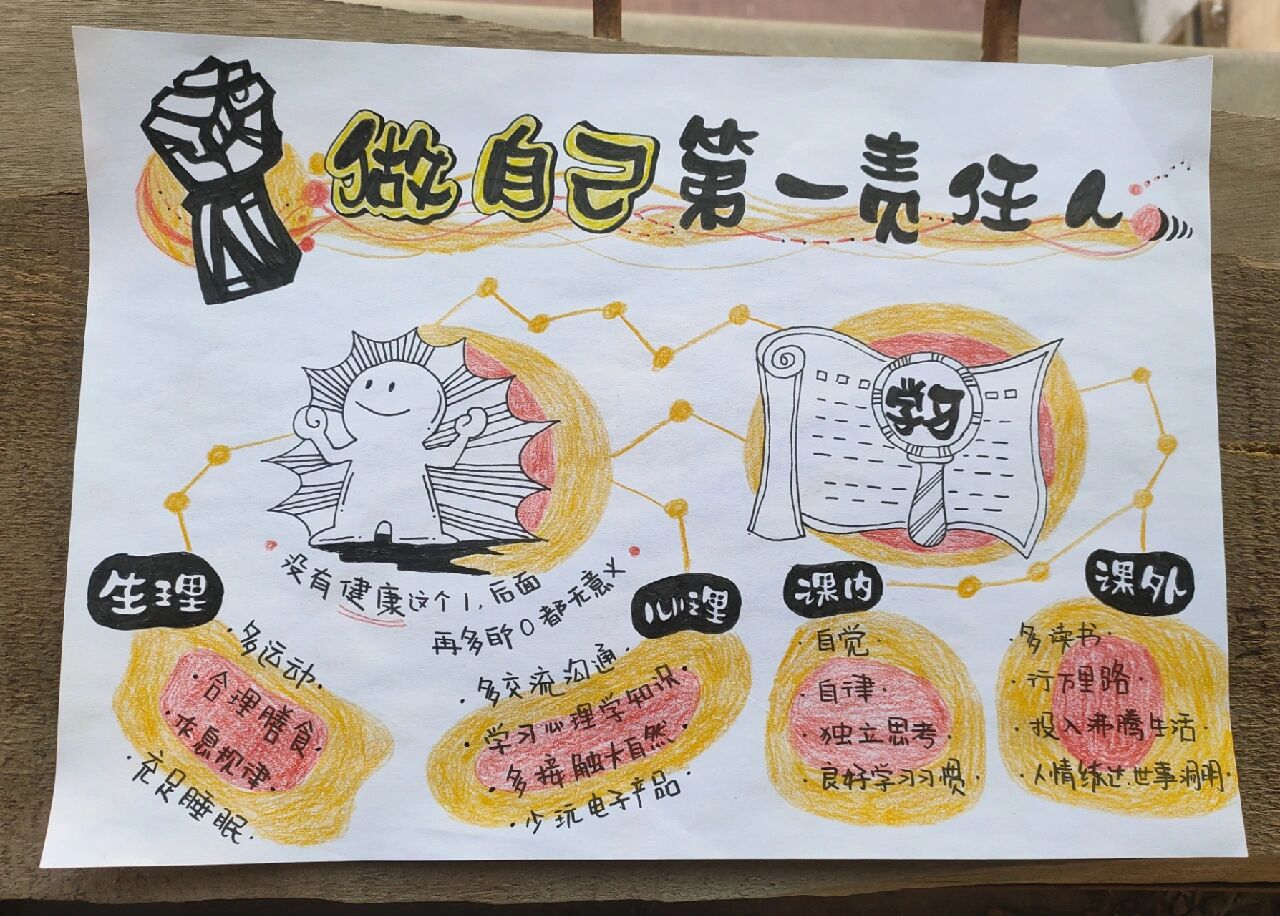 做自己第一责任人
学习
没有健康这个1,后面
再多的0都无意义
生理
·多运动·
·合理膳食·
·作息规律·
充足睡眠·
心理
·多交流沟通·
·学习心理学知识·
·多接触大自然·
·少玩电子产品·
课内
·自觉·
·自律·
·独立思考·
·良好学习习惯·
课外
·多读书·
·行万里路·
·投入沸腾生活·
·人情练达.世事洞明·